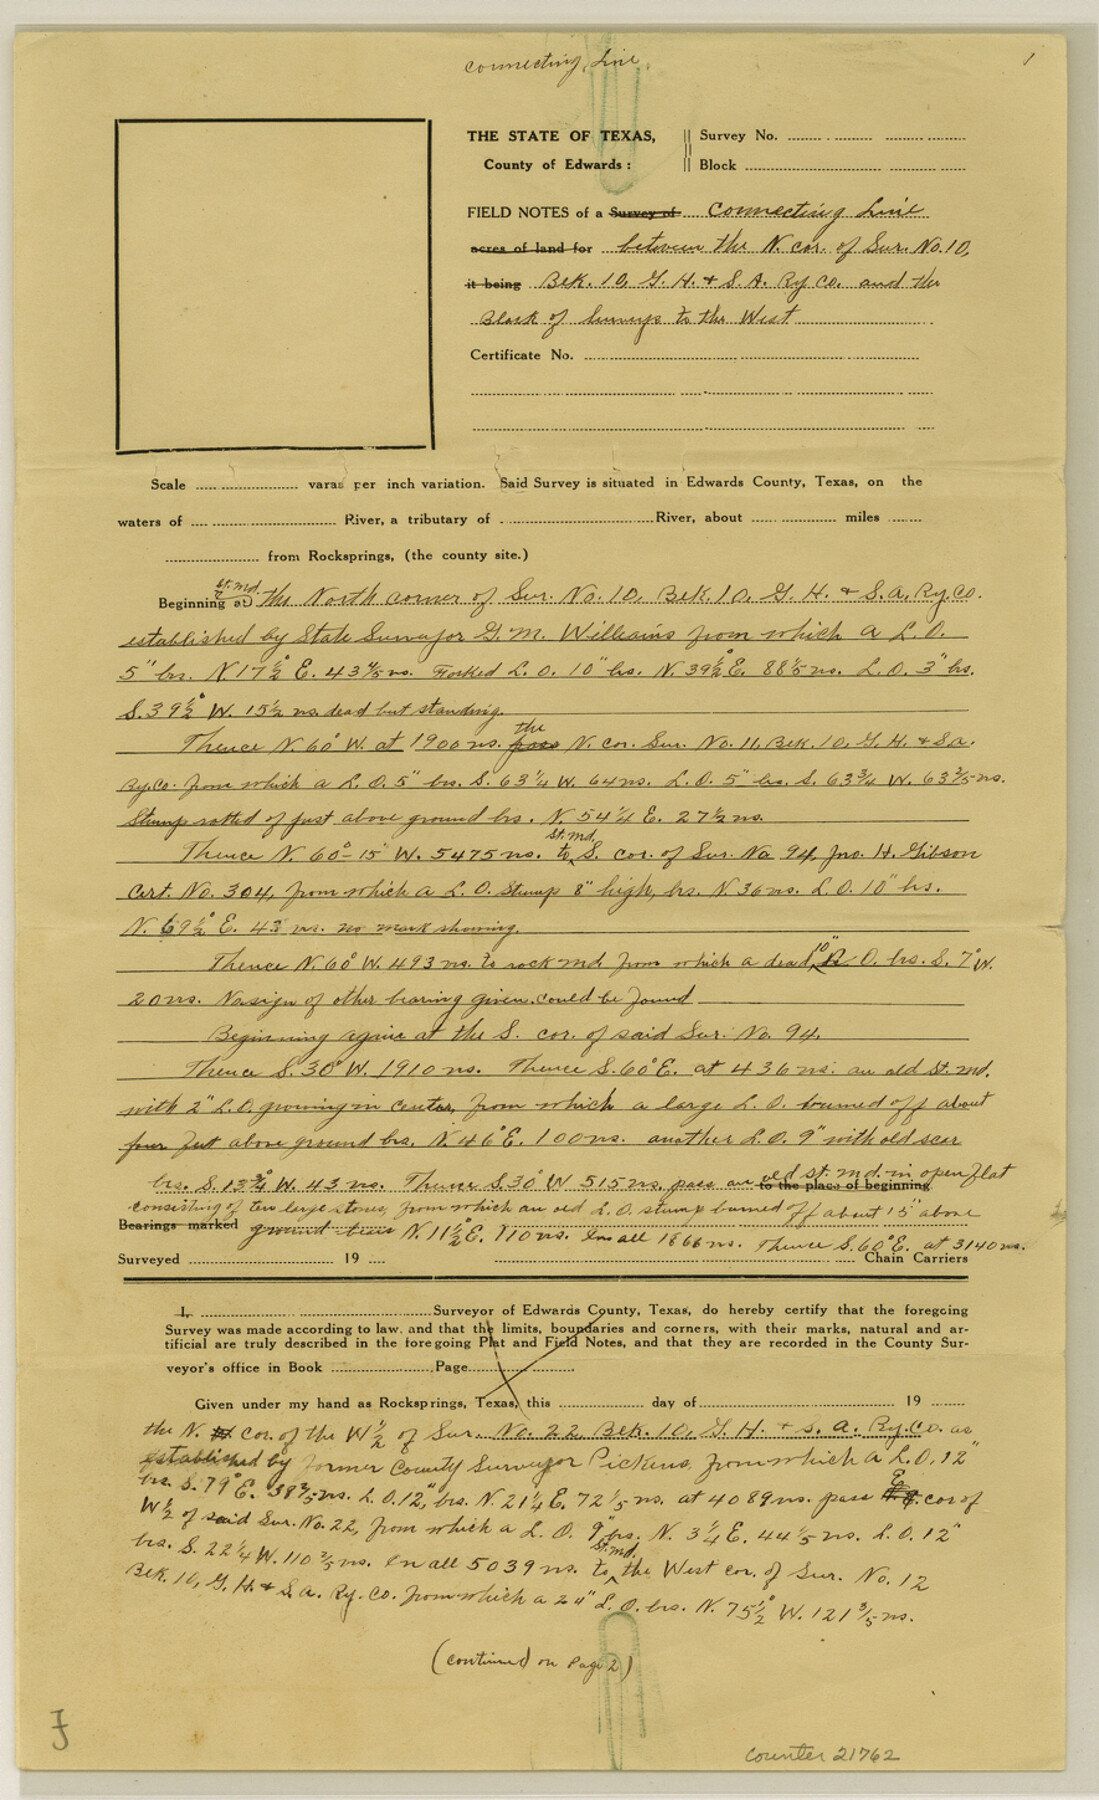 connecting Line
1
THE STATE OF TEXAS,
County of Edwards:
Survey No.
Block
FIELD NOTES of a Survey of connecting Line
acres of land for between the N. cor. of Sur. No. 10,
it being Blk. 10, G. H. & S. A. Ry. Co. and the
Block of Surveys to the West
Certificate No.
Scale varas per inch variation. Said Survey is situated in Edwards County, Texas, on the
waters of River, a tributary of River, about miles
from Rocksprings, (the county site.)
st. md.
Beginning at the North corner of Sur. No. 10, Blk. 10, G. H. & S. A. Ry. Co.
established by State Surveyor G. M. Williams from which a L. O.
5" brs. N. 17 1/2° E. 43 4/5 vrs. Forked L. O. 10" brs. N. 39 1/2° E. 88 1/5 vrs. L. O. 3" brs.
S. 39 1/2° W. 15 1/2 vrs. dead but standing.
Thence N. 60° W. at 1900 vrs. pass the N. cor. Sur. No. 11, Blk. 10, G. H. & S. A.
Ry. Co. from which a L. O. 5" brs. S. 63 1/4 W. 64 vrs. L. O. 5" brs. S. 63 3/4 W. 63 3/5 vrs.
Stump rotted of just above ground brs. N. 54 1/4 E. 27 1/2 vrs.
Thence N. 60°-15" W. 5475 vrs. to st. md. S. cor. of Sur. No. 94, Jno. H. Gibson
Cert. No. 304, from which a L. O. Stump 8" high, brs. N 36 vrs. L. O. 10" brs.
N. 69 1/2° E. 43 vrs. no mark showing.
Thence N. 60° W. 493 vrs. to rock md. from which a dead 10" O. brs. S. 7° W.
20 vrs. No sign of other bearing given could be found
Beginning again at the S. cor. of said Sur. No. 94.
Thence S. 30° W. 1910 vrs. Thence S. 60° E. at 436 vrs. an old St. md.
with 2" L. O. growing in center, from which a large L. O. burned off about
four feet above ground brs. N 46° E. 100 vrs. another L. O. 9" with old scar
brs. S. 13 3/4° W. 43 vrs. Thence S. 30° W 515 vrs. pass an old st. md. in open flat
to the place of beginning
consisting of ten large stones, from which an old L. O. stump burned off about 15" above
Bearings marked ground bears N. 11 1/2° E. 110 vrs. In all 1866 vrs. Thence S. 60° E. at 3140 vrs.
Surveyed 19 Chain Carriers
I, Surveyor of Edwards County, Texas, do hereby certify that the foregoing
Survey was made according to law, and that the limits, boundaries and corners, with their marks, natural and ar-
tificial are truly described in the foregoing Plat and Field Notes, and that they are recorded in the County Sur-
veyor's office in Book Page
Given under my hand as Rocksprings, Texas, this day of 19
the N. cor. of the W 1/2 of Sur. No. 22 Blk. 10, G. H. & S. A. Ry. Co. as
established by former County Surveyor Pickens, from which a L. O. 12"
brs. S. 79° E. 38 3/5 vrs. L. O. 12", brs. N. 21 1/4 E. 72 1/5 vrs. at 4089 vrs. pass E cor of
W 1/2 of said Sur. No. 22, from which a L. O. 9" brs. N. 3 1/4 E. 44 1/5 vrs. L. O. 12"
brs. S. 22 1/4 W. 110 2/5 vrs. In all 5039 vrs. to st. md. the West cor. of Sur. No. 12
Blk. 10, G. H. & S. A. Ry. Co. from which a 24" L. O. brs. N. 75 1/2° W. 121 3/5 vrs.
(continued on Page 2)
counter 21762